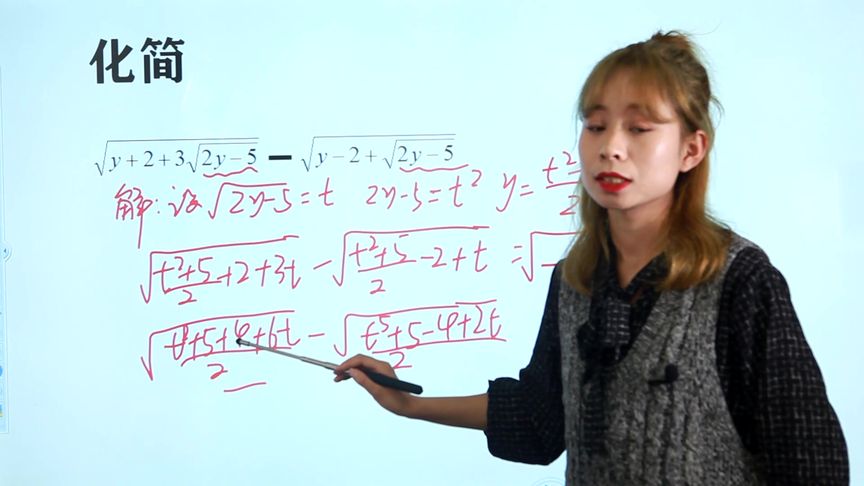 化简
√(y+2+3√(2y-5)) - √(y-2+√(2y-5))
解:设√(2y-5)=t 2y-5=t² y=t²/2
√((t²+5)/2+2+3t) - √((t²+5)/2-2+t) =√
√((t²+5+4+6t)/2) - √((t⁵+5-4+2t)/2)